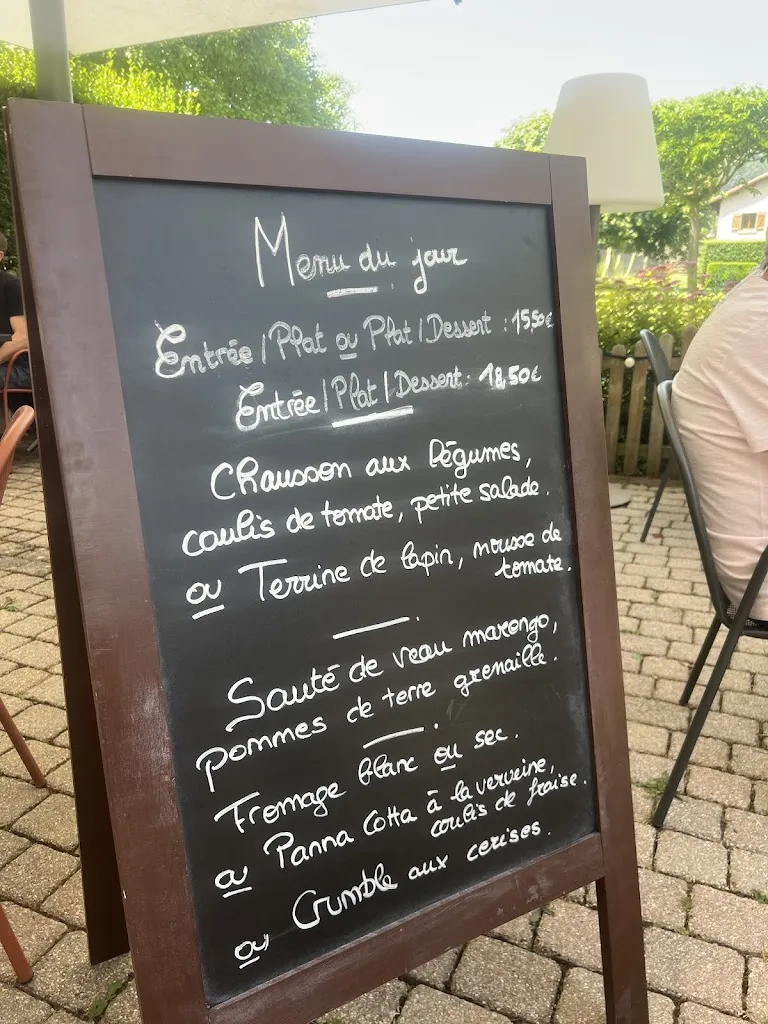 Menu du jour
Entrée/Plat ou Plat/Dessert : 15,50€
Entrée/Plat/Dessert : 18,50€
Chausson aux légumes,
coulis de tomate, petite salade.
ou Terrine de lapin, mousse de
tomate.
Sauté de veau marengo,
pommes de terre grenaille.
Fromage blanc ou sec.
ou Panna Cotta à la verveine,
coulis de fraise.
ou Crumble aux cerises.